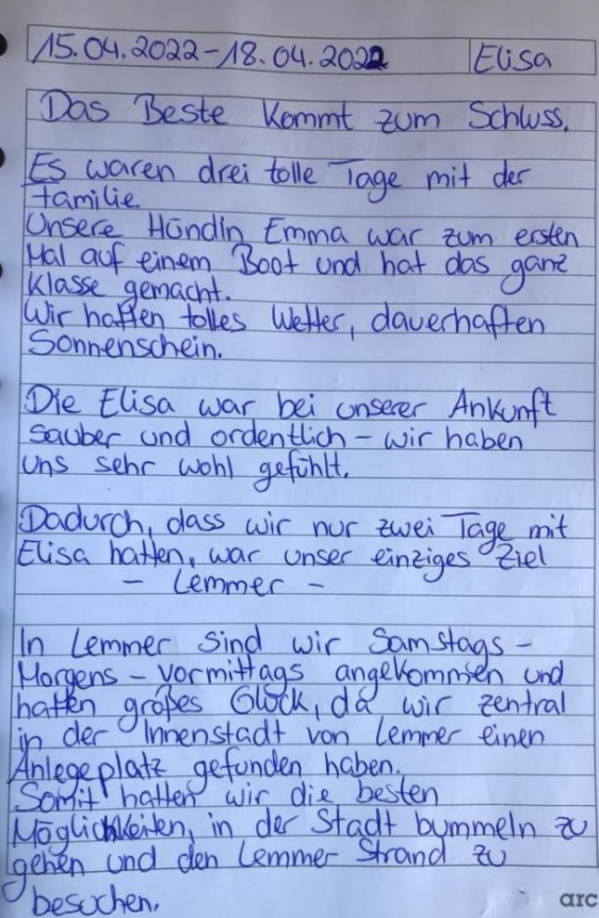 15.04.2022-18.04.2022 Elisa
Das Beste kommt zum Schluss.
Es waren drei tolle Tage mit der
Familie.
Unsere Hündin Emma war zum ersten
Mal auf einem Boot und hat das ganz
klasse gemacht.
Wir hatten tolles Wetter, dauerhaften
Sonnenschein.
Die Elisa war bei unserer Ankunft
sauber und ordentlich - wir haben
uns sehr wohl gefühlt.
Dadurch, dass wir nur zwei Tage mit
Elisa hatten, war unser einziges Ziel
- Lemmer -
In Lemmer sind wir Samstags -
Morgens - vormittags angekommen und
hatten großes Glück, da wir zentral
in der Innenstadt von Lemmer einen
Anlegeplatz gefunden haben.
Somit hatten wir die besten
Möglichkeiten, in der Stadt bummeln zu
gehen und den Lemmer Strand zu
besuchen.
arc